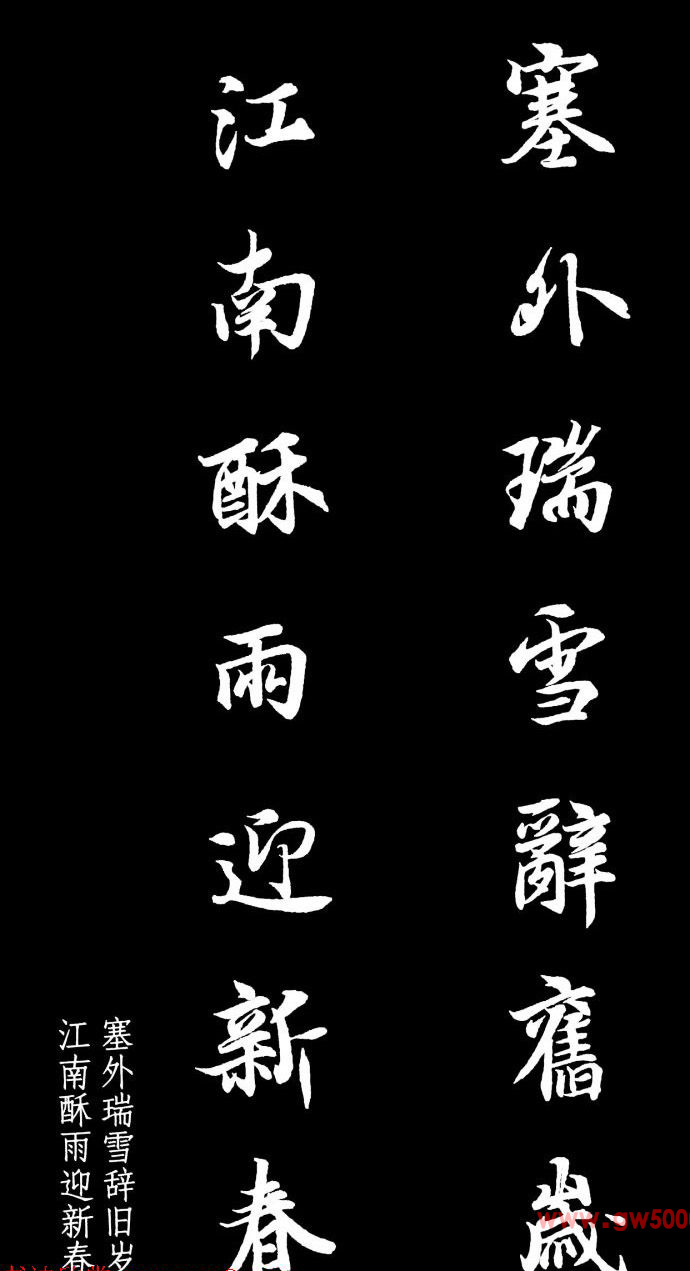 塞外瑞雪辭舊歲
江南酥雨迎新春
塞外瑞雪辞旧岁
江南酥雨迎新春
www.gw500